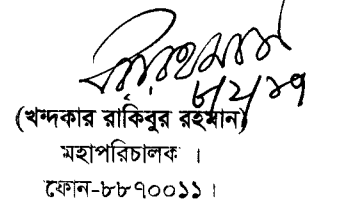 (খন্দকার রাকিবুর রহমান)
মহাপরিচালক ।
ফোন-৮৮৭০০১১ ।